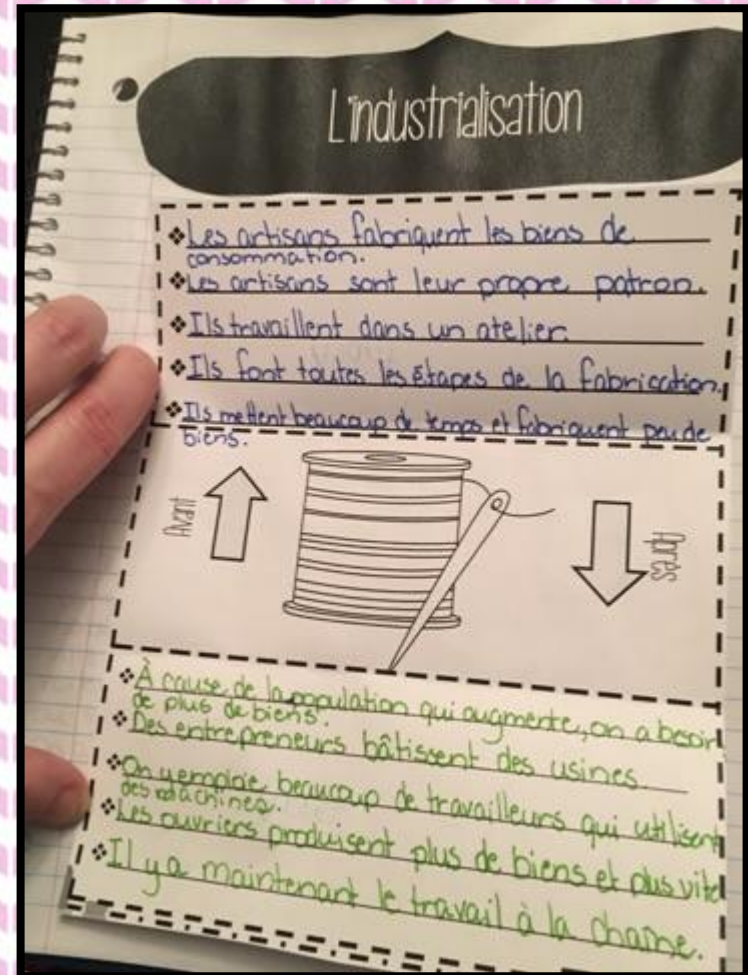 L'industrialisation
❖Les artisans fabriquent les biens de
consommation.
❖Les artisans sont leur propre patron.
❖Ils travaillent dans un atelier.
❖Ils font toutes les étapes de la fabrication.
❖Ils mettent beaucoup de temps et fabriquent peu de
biens.
Avant
Après
❖À cause de la population qui augmente, on a besoin
de plus de biens.
❖Des entrepreneurs bâtissent des usines.
❖On y emploie beaucoup de travailleurs qui utilisent
des machines.
❖Les ouvriers produisent plus de biens et plus vite
❖Il y a maintenant le travail à la chaîne.